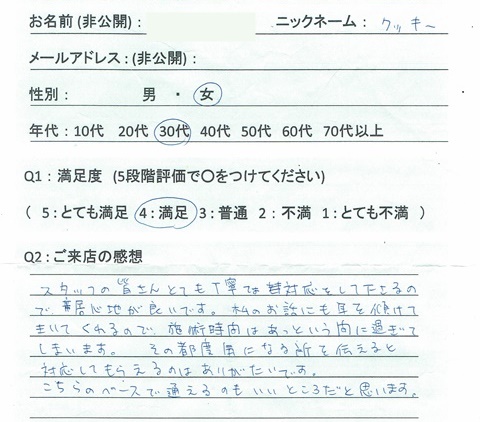 お名前(非公開)： ニックネーム： クッキー
メールアドレス：(非公開)：
性別： 男 ・ 女
年代：10代 20代 30代 40代 50代 60代 70代以上
Q1：満足度 (5段階評価で〇をつけてください)
( 5：とても満足 4：満足 3：普通 2：不満 1：とても不満 )
Q2：ご来店の感想
スタッフの皆さんとても丁寧な対応をして下さるの
で居心地が良いです。私のお話にも耳を傾けて
きいてくれるので、施術時間はあっという間に過ぎて
しまいます。 その都度気になる所を伝えると
対応してもらえるのはありがたいです。
こちらのペースで通えるのもいいところだと思います。